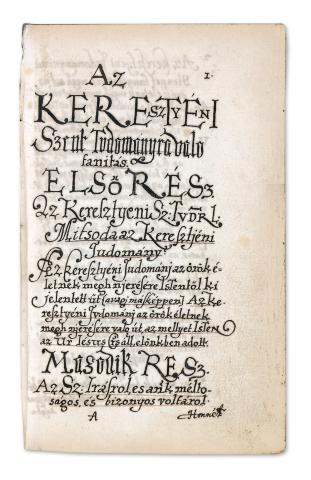 Az 1.
KERESZTYÉNI
Szent Tudomanyra valo
tanitás.
ELSŐ RÉSZ.
Az Keresztyeni Sz: Tvdr̄l.
Mitsoda az Keresztjéni
Tudomány?
Az keresztyéni Tudomānj az örök é-
letnek megh njeresere Istentöl ki
jelentett út (avagj másképpen) Az Ke-
resztyéni Tudomānj az örök életnek
megh njerésere valo út, az mellyet Isten
az Ur Jesus által, elönkben adott.
Masodik RESZ.
Az Sz: Irásrol, es anik mélto-
ságos, és bizonyos voltárol.
A Honnét